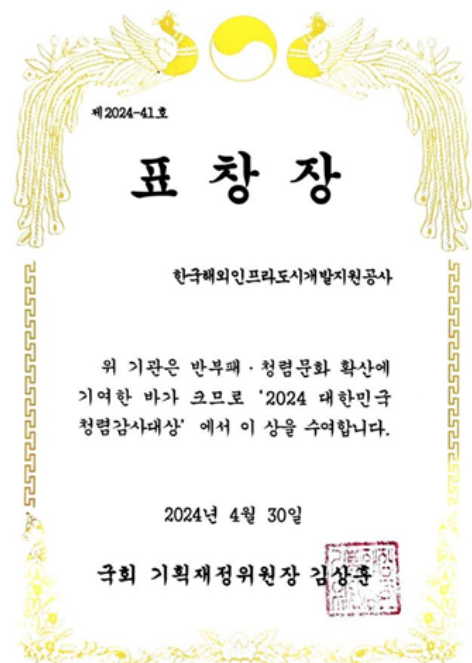 제2024-41호
표창장
한국해외인프라도시개발지원공사
위 기관은 반부패·청렴문화 확산에
기여한 바가 크므로 '2024 대한민국
청렴감사대상' 에서 이 상을 수여합니다.
2024년 4월 30일
국회 기획재정위원장 김상훈